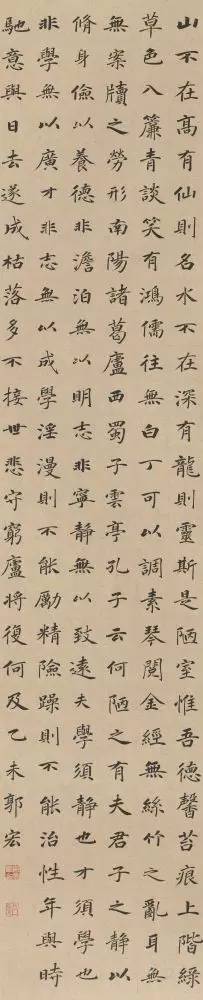 山不在高有仙則名水不在深有龍則靈斯是陋室惟吾德馨苔痕上階綠
草色入簾青談笑有鴻儒往無白丁可以調素琴閱金經無絲竹之亂耳無
無案牘之勞形南陽諸葛廬西蜀子雲亭孔子云何陋之有夫君子之靜以
脩身儉以養德非澹泊無以明志非寧靜無以致遠夫學須靜也才須學也
非學無以廣才非志無以成學淫漫則不能勵精險躁則不能治性年與時
馳意與日去遂成枯落多不接世悲守窮廬將復何及乙未郭宏